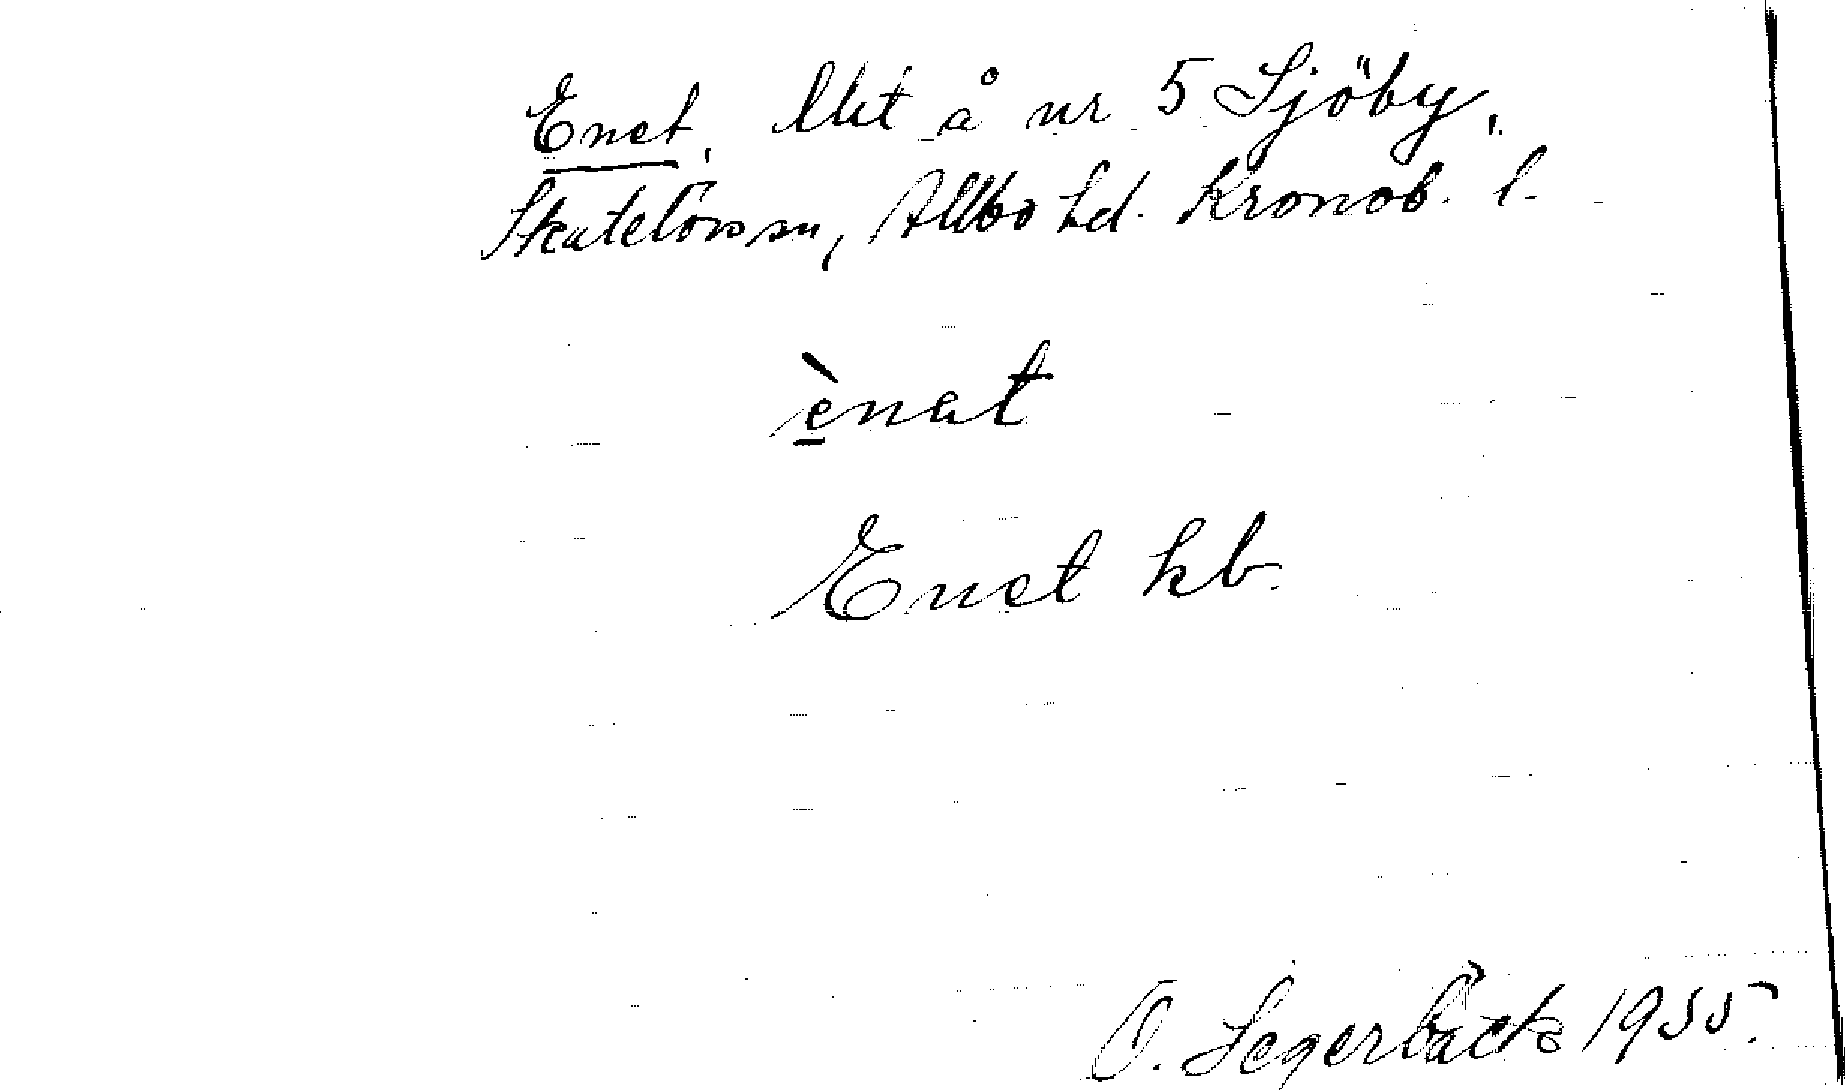 Enet, lht å nr 5 Sjöby,
Skatelövs sn, Allbo hd. Kronob. l.
ènat
Enet kb.
O. Segerbäck 1955.